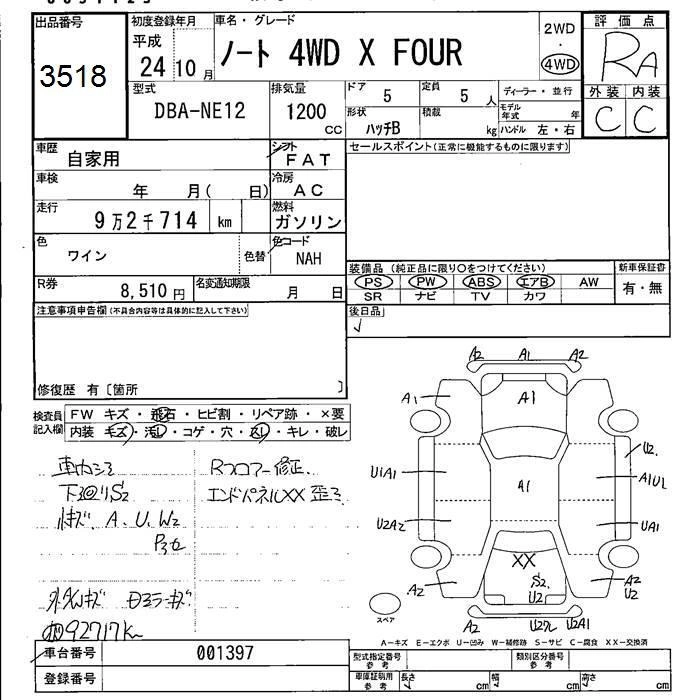 出品番号
3518
初度登録年月
平成
24 10 月
車名・グレード
ノート 4WD X FOUR
2WD
・
4WD
評価点
RA
外装 内装
C C
型式
DBA-NE12
排気量
1200
CC
ドア
5
定員
5 人
ディーラー・並行
形状
ハッチB
積載
kg
モデル
年式 年
ハンドル 左・右
車歴
自家用
シフト
FAT
車検
年 月( 日)
冷房
AC
走行
9万2千714 km
燃料
ガソリン
色
ワイン
色替
色コード
NAH
R券
8,510 円
名変通知期限
月 日
セールスポイント(正常に機能するものに限ります)
装備品 (純正品に限り○をつけてください)
新車保証書
PS PW ABS エアB AW
SR ナビ TV カワ
有・無
後日品
注意事項申告欄(不具合内容等は具体的に記入して下さい)
修復歴 有〔箇所 〕
検査員
記入欄
FW キズ・飛石・ヒビ割・リペア跡・×要
内装 キズ・汚レ・コゲ・穴・スレ・キレ・破レ
下廻りS2
A、U、W2
Rフロアー修正
エンドパネルXX 歪ミ
92717K
A2 A1 A2
A1
A1
U1A1
A1
U2
A1U1
U2A2
UA1
XX
S2
U2
A2
A2
U2
A2
U2A1
スペア
A-キズ E-エクボ U-凹み W-補修跡 S-サビ C-腐食 XX-交換済
車台番号
001397
登録番号
型式指定番号
参考
類別区分番号
参考
車庫証明用
参考
長さ cm
幅 cm
高さ cm